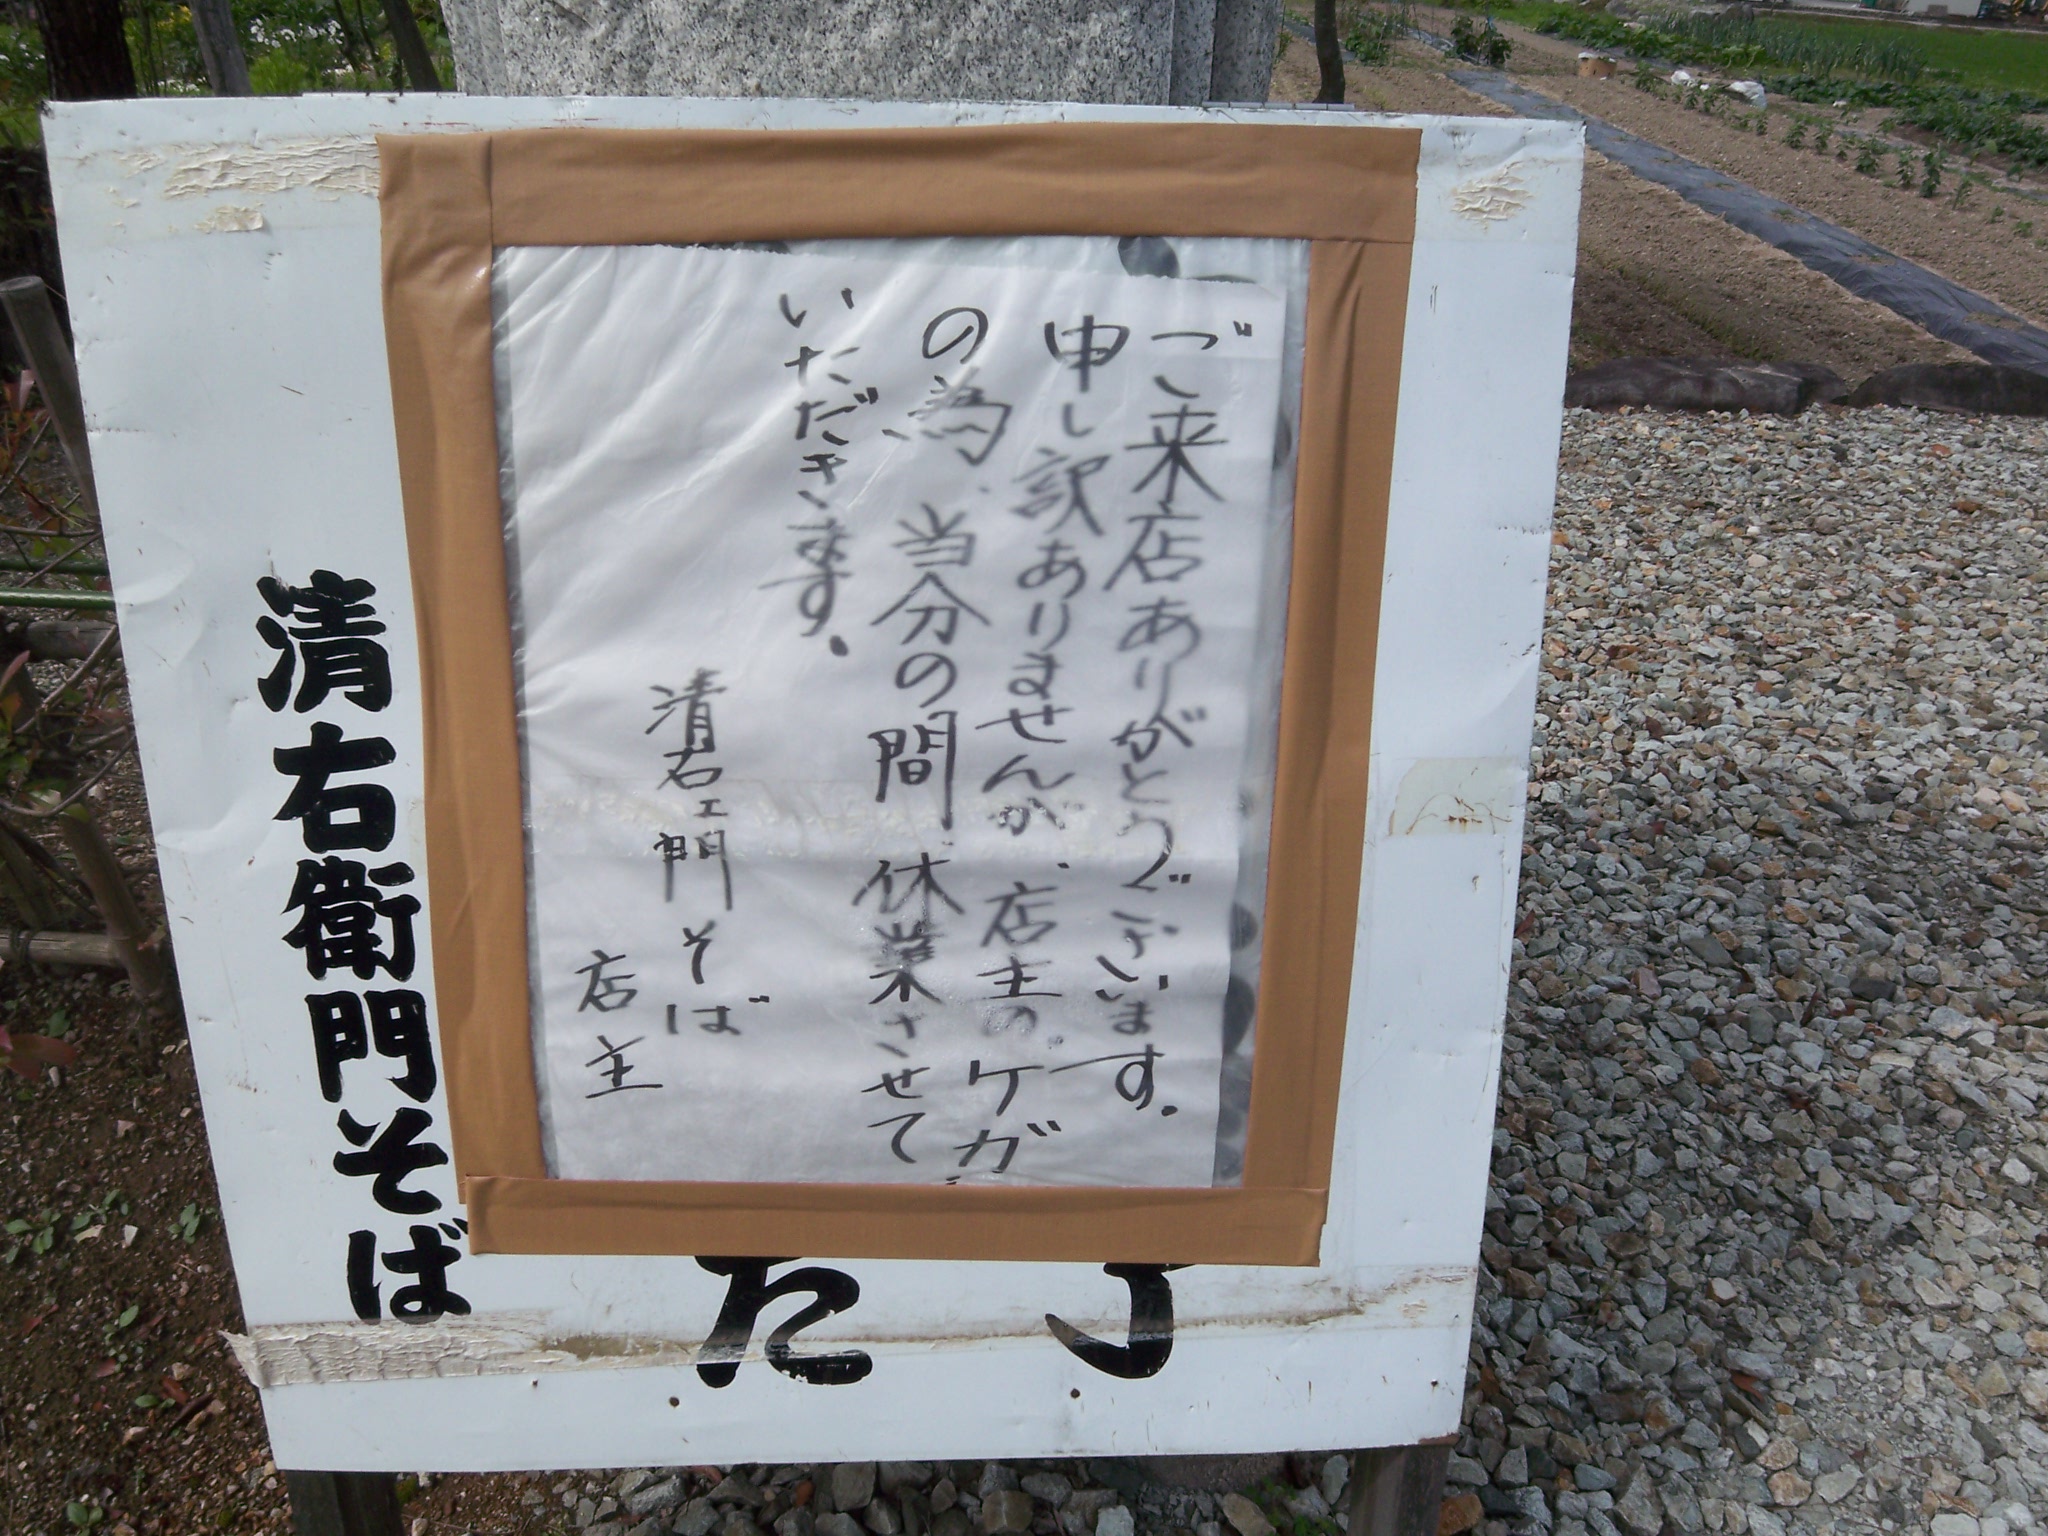 ご来店ありがとうございます。
申し訳ありませんが、店主のケガ
の為、当分の間、休業させて
いただきます。
清右ェ門そば
店主
清右衛門そば